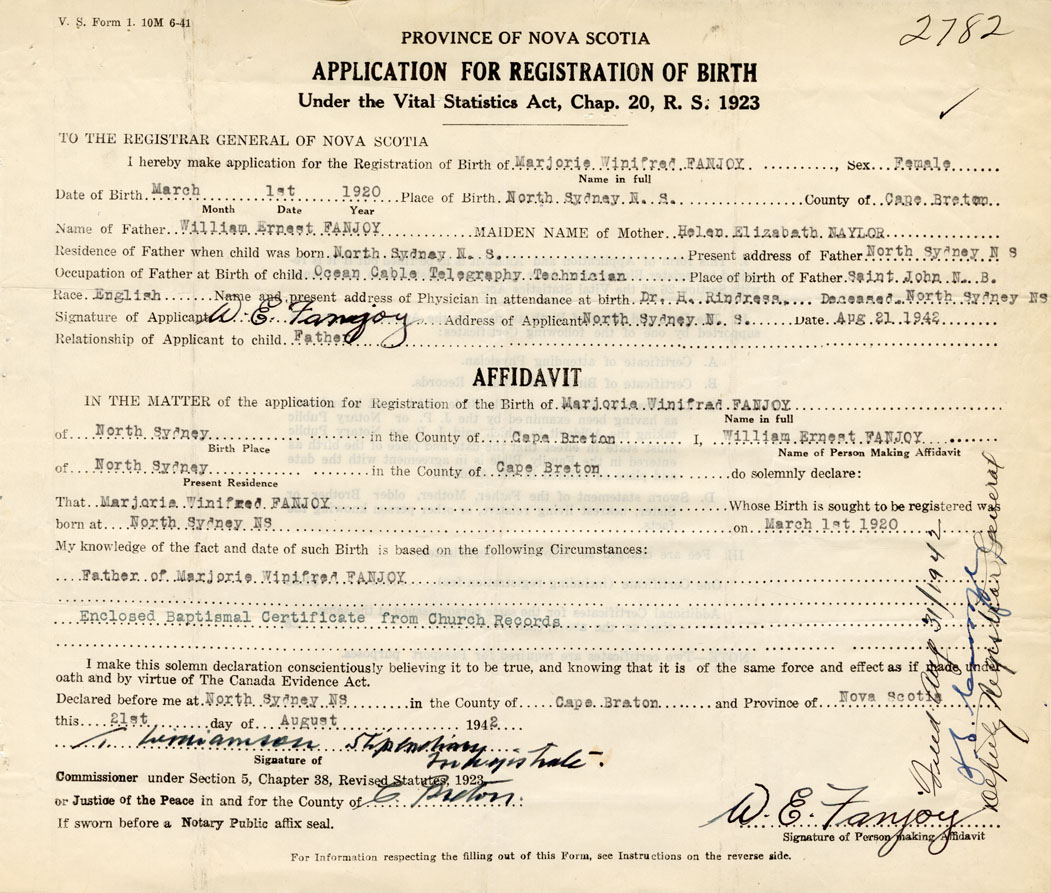 V. S. Form 1. 10M 6-41
2782
PROVINCE OF NOVA SCOTIA
APPLICATION FOR REGISTRATION OF BIRTH
Under the Vital Statistics Act, Chap. 20, R. S. 1923
TO THE REGISTRAR GENERAL OF NOVA SCOTIA
I hereby make application for the Registration of Birth of Marjorie Winifred FANJOY, Sex Female
Name in full
Date of Birth March 1st 1920 Place of Birth North Sydney N. S. County of Cape Breton
Month Date Year
Name of Father William Ernest FANJOY MAIDEN NAME of Mother Helen Elizabeth NAYLOR
Residence of Father when child was born North Sydney N. S. Present address of Father North Sydney N S
Occupation of Father at Birth of child Ocean Cable Telegraphy Technician Place of birth of Father Saint John N. B.
Race English Name and present address of Physician in attendance at birth Dr. H. Rindress Deceased North Sydney NS
Signature of Applicant W. E. Fanjoy Address of Applicant North Sydney N. S. Date Aug 21 1942
Relationship of Applicant to child Father
AFFIDAVIT
IN THE MATTER of the application for Registration of the Birth of Marjorie Winifred FANJOY
Name in full
of North Sydney in the County of Cape Breton I, William Ernest FANJOY
Birth Place Name of Person Making Affidavit
of North Sydney in the County of Cape Breton do solemnly declare:
Present Residence
That Marjorie Winifred FANJOY Whose Birth is sought to be registered was
born at North Sydney NS on March 1st 1920
My knowledge of the fact and date of such Birth is based on the following Circumstances:
Father of Marjorie Winifred FANJOY
Enclosed Baptismal Certificate from Church Records
I make this solemn declaration conscientiously believing it to be true, and knowing that it is of the same force and effect as if made under
oath and by virtue of The Canada Evidence Act.
Declared before me at North Sydney NS in the County of Cape Breton and Province of Nova Scotia
this 21st day of August 1942
Stipendiary
Magistrate.
Signature of
Commissioner under Section 5, Chapter 38, Revised Statutes, 1923
or Justice of the Peace in and for the County of C. Breton.
If sworn before a Notary Public affix seal.
W. E. Fanjoy
Signature of Person making Affidavit
For Information respecting the filling out of this Form, see Instructions on the reverse side.
Filed Aug 31/1942
Deputy Registrar General